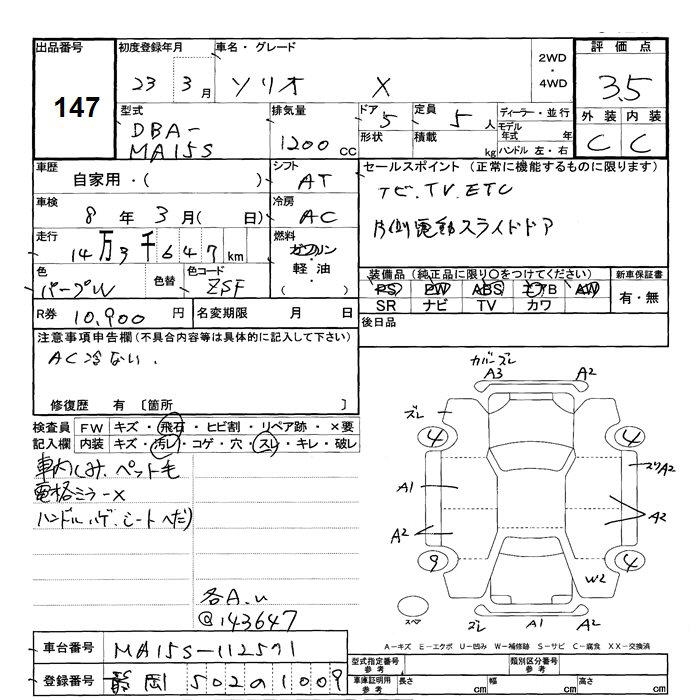 出品番号
147
初度登録年月
23 3月
車名・グレード
ソリオ X
2WD
・
4WD
評価点
3.5
外装 内装
C C
型式
DBA-
MA15S
排気量
1200cc
ドア 5
形状
定員 5人
積載 kg
ディーラー・並行
モデル年式 年
ハンドル 左・右
車歴
自家用・( )
車検
8年3月( 日)
走行
14万3千647km
色
パープルW
色替
色コード
ZSF
シフト
AT
冷房
AC
燃料
ガソリン
・
軽油
( )
セールスポイント (正常に機能するものに限ります)
ナビ.TV.ETC
片側電動スライドドア
装備品(純正品に限り○をつけてください)
PS PW ABS エアB AW
SR ナビ TV カワ
新車保証書
有・無
R券 10,900円
名変期限 月 日
後日品
注意事項申告欄(不具合内容等は具体的に記入して下さい)
AC冷ない.
修復歴 有 〔箇所 〕
検査員記入欄
FW キズ・飛石・ヒビ割・リペア跡・×要
内装 キズ・汚レ・コゲ・穴・スレ・キレ・破レ
車内しみ.ペット毛
電格ミラー×
ハンドルハゲ.シートへたり
各A.U
@143647
カバーズレ
A3 A2
ズレ
4 4
A1
A2
スリA2
A2
9 4
W2
スペア
ズレ A1 A2
A-キズ E-エクボ U-凹み W-補修跡 S-サビ C-腐食 XX-交換済
車台番号 MA15S-112571
登録番号 静岡 502の1009
型式指定番号
参考
類別区分番号
参考
車庫証明用
参考
長さ cm
幅 cm
高さ cm